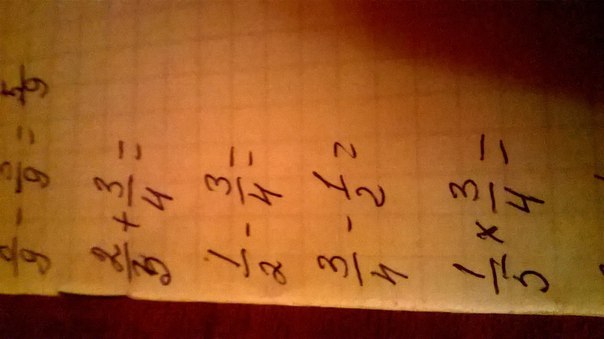 9 - 3/9 = 5/9
2/3 + 3/4 =
1/2 - 3/4 =
3/4 - 1/2 =
1/5 x 3/4 =